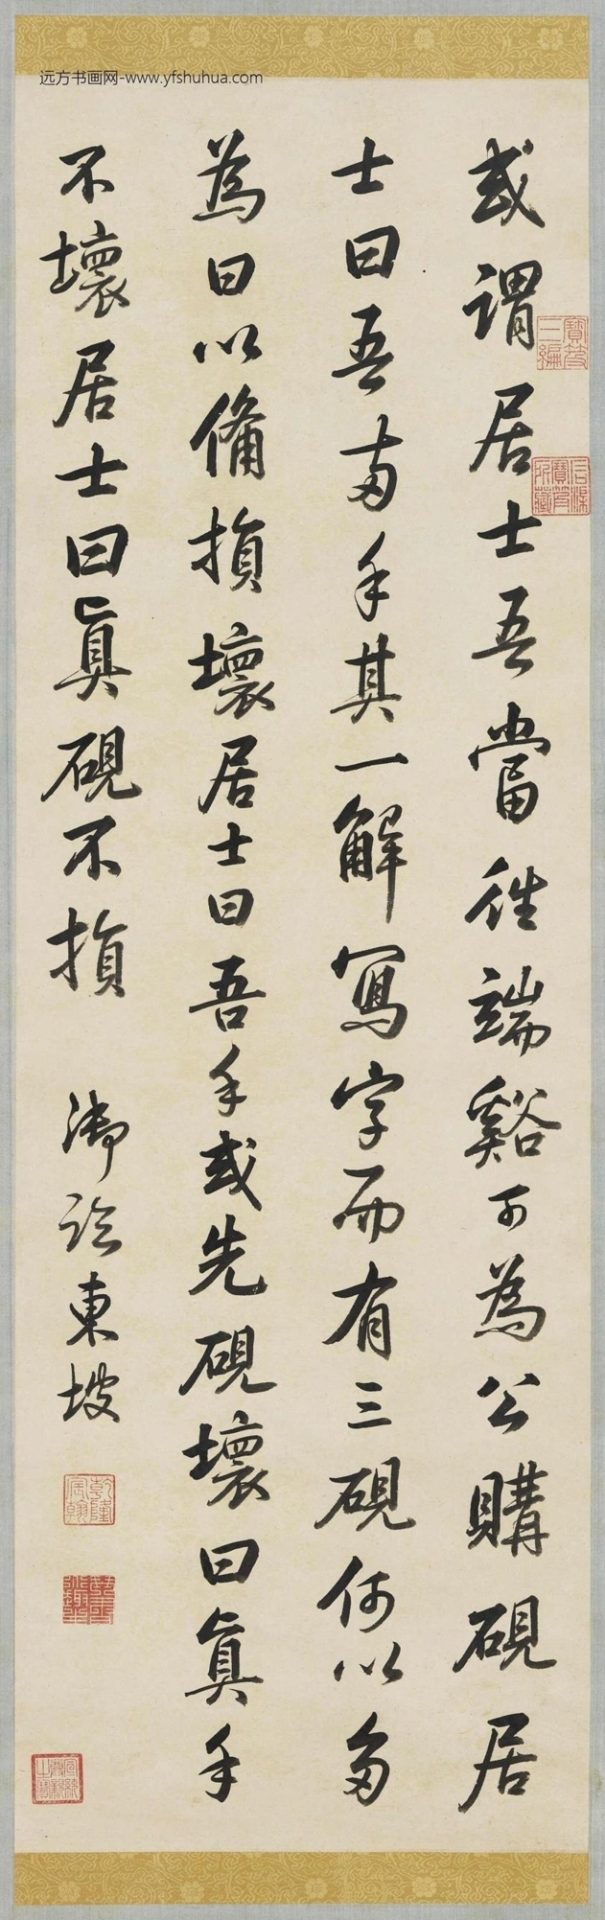 远方书画网-www.yfshuhua.com
或謂居士吾當往端谿可為公購硯居
士曰吾兩手其一解寫字而有三硯何以多
為曰以俻損壞居士曰吾手或先硯壞曰真手
不壞居士曰真硯不損
御臨東坡
乾隆宸翰